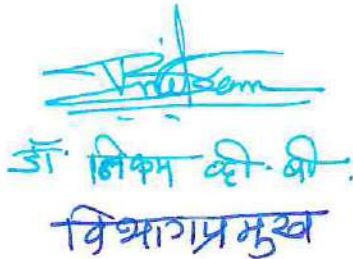 डॉ. निकम व्ही. बी.
विभागप्रमुख